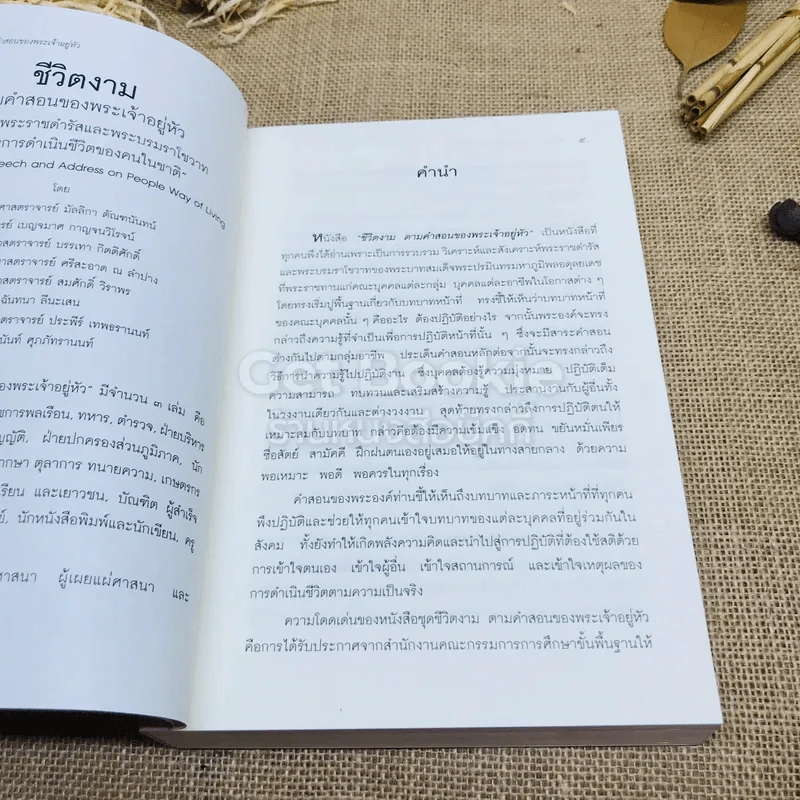 คำสอนของพระเจ้าอยู่หัว
ชีวิตงาม
คำสอนของพระเจ้าอยู่หัว
พระราชดำรัสและพระบรมราโชวาท
การดำเนินชีวิตของคนในชาติ"
eech and Address on People Way of Living
โดย
ศาสตราจารย์ มัลลิกา ตัณฑนันทน์
รย์ เบญจมาศ กาญจนวิโรจน์
าสตราจารย์ บรรเทา กิตติศักดิ์
าสตราจารย์ ศรีสะอาด ณ ลำปาง
าสตราจารย์ สมศักดิ์ วิราพร
ฉันทนา ลีนะเสน
ตราจารย์ ประพีร์ เทพธรานนท์
นันท์ ศุภภัทรานนท์
องพระเจ้าอยู่หัว" มีจำนวน ๓ เล่ม คือ
ชการพลเรือน, ทหาร, ตำรวจ, ฝ่ายบริหาร
ญญัติ, ฝ่ายปกครองส่วนภูมิภาค, นัก
ากษา ตุลาการ ทนายความ, เกษตรกร
เรียน และเยาวชน, บัณฑิต ผู้สำเร็จ
ย์, นักหนังสือพิมพ์และนักเขียน, ครู
าสนา ผู้เผยแผ่ศาสนา และ
๕
คำนำ
หนังสือ "ชีวิตงาม ตามคำสอนของพระเจ้าอยู่หัว" เป็นหนังสือที่
ทุกคนพึงได้อ่านเพราะเป็นการรวบรวม วิเคราะห์และสังเคราะห์พระราชดำรัส
และพระบรมราโชวาทของพระบาทสมเด็จพระปรมินทรมหาภูมิพลอดุลยเดช
ที่พระราชทานแก่คณะบุคคลแต่ละกลุ่ม บุคคลแต่ละอาชีพในโอกาสต่าง ๆ
โดยทรงเริ่มปูพื้นฐานเกี่ยวกับบทบาทหน้าที่ ทรงชี้ให้เห็นว่าบทบาทหน้าที่
ของคณะบุคคลนั้น ๆ คืออะไร ต้องปฏิบัติอย่างไร จากนั้นพระองค์จะทรง
กล่าวถึงความรู้ที่จำเป็นเพื่อการปฏิบัติหน้าที่นั้น ๆ ซึ่งจะมีสาระคำสอน
ต่างกันไปตามกลุ่มอาชีพ ประเด็นคำสอนหลักต่อจากนั้นจะทรงกล่าวถึง
วิธีการนำความรู้ไปปฏิบัติงาน ซึ่งบุคคลต้องรู้ความมุ่งหมาย ปฏิบัติเต็ม
ความสามารถ ทบทวนและเสริมสร้างความรู้ ประสานงานกับผู้อื่นทั้ง
ในวงงานเดียวกันและต่างวงงาน สุดท้ายทรงกล่าวถึงการปฏิบัติตนให้
เหมาะสมกับบทบาท กล่าวคือต้องมีความเข้มแข็ง อดทน ขยันหมั่นเพียร
ซื่อสัตย์ สามัคคี ฝึกฝนตนเองอยู่เสมอให้อยู่ในทางสายกลาง ด้วยความ
พอเหมาะ พอดี พอควรในทุกเรื่อง
คำสอนของพระองค์ท่านชี้ให้เห็นถึงบทบาทและภาระหน้าที่ที่ทุกคน
พึงปฏิบัติและช่วยให้ทุกคนเข้าใจบทบาทของแต่ละบุคคลที่อยู่ร่วมกันใน
สังคม ทั้งยังทำให้เกิดพลังความคิดและนำไปสู่การปฏิบัติที่ต้องใช้สติด้วย
การเข้าใจตนเอง เข้าใจผู้อื่น เข้าใจสถานการณ์ และเข้าใจเหตุผลของ
การดำเนินชีวิตตามความเป็นจริง
ความโดดเด่นของหนังสือชุดชีวิตงาม ตามคำสอนของพระเจ้าอยู่หัว
คือการได้รับประกาศจากสำนักงานคณะกรรมการการศึกษาขั้นพื้นฐานให้
Got Booking
ร้านหนังสือจุกกี้